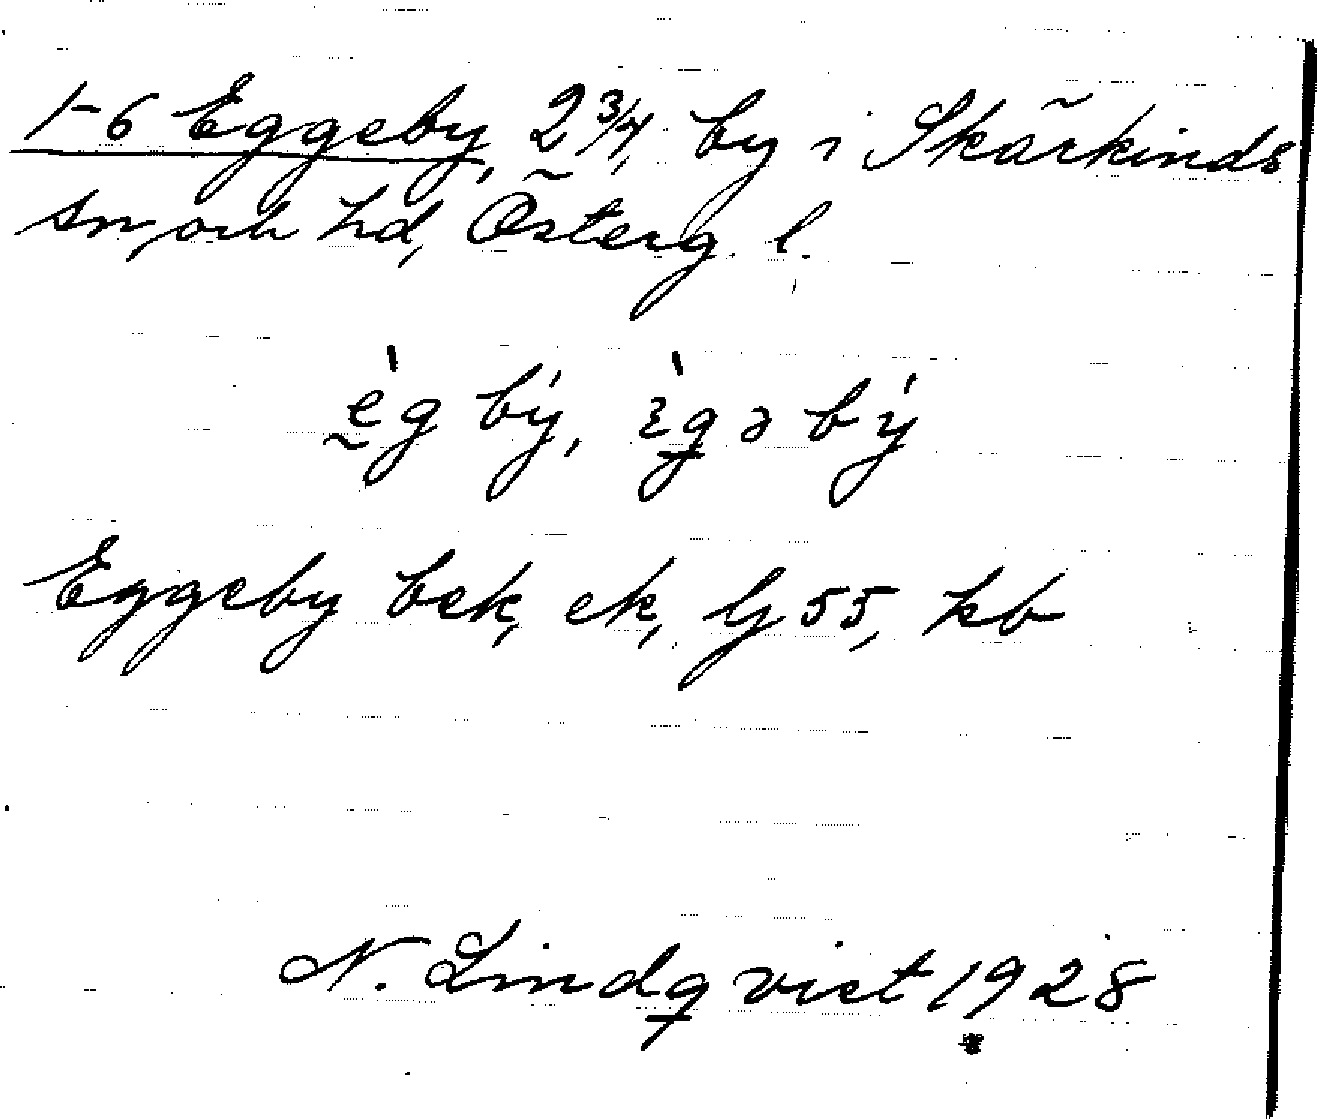 1-6 Eggeby, 2 3/4, by i Skärkinds
sn, och hd, Österg. l.
ḛ̀g bý, ɛ̀gə bý
Eggeby bek, ek, lj 55, kb
N. Lindqvist 1928